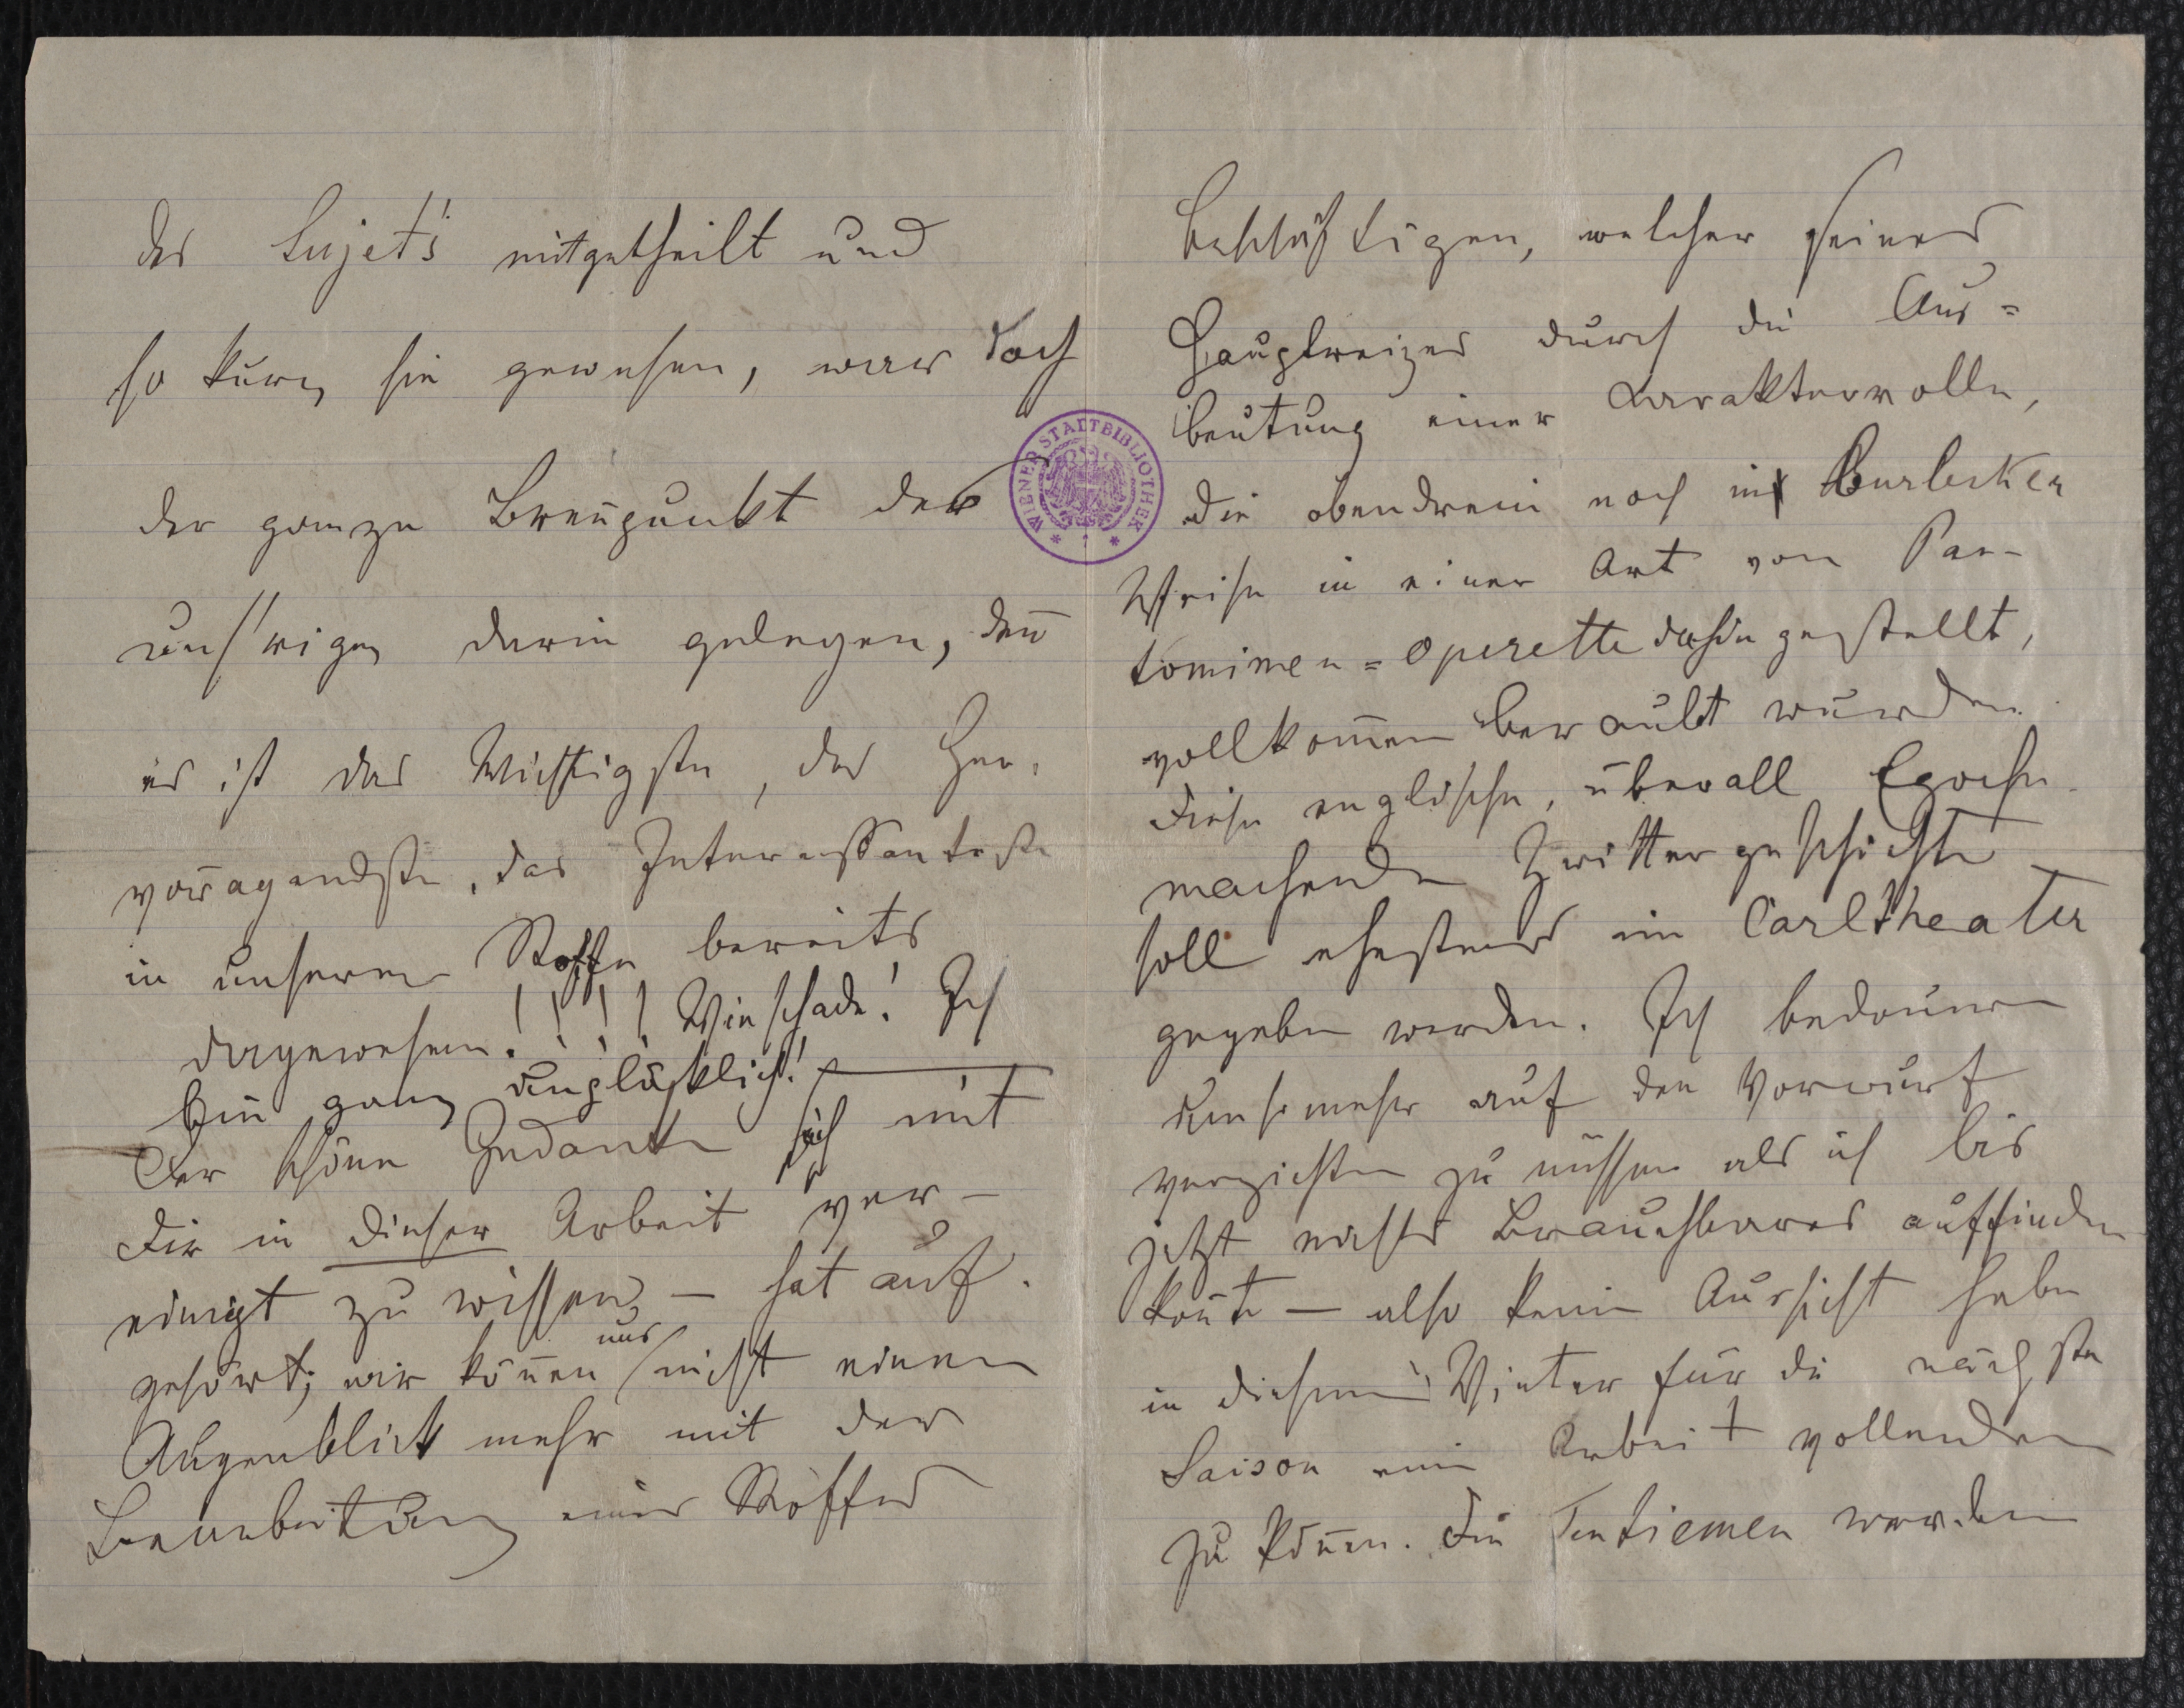 des Sujet's mitgetheilt und
so kurz sie gewesen, war doch
der ganze Brenn̄punkt des
unsrigen darin gelegen, deñ
es ist das Wichtigste, das Her-
vorragendste, das Interessanteste
in unserem Stoffe bereits
dagewesen!!!!! Wie schade! Ich
bin ganz unglücklich!
Der schöne Gedanke sich mit
Dir in dieser Arbeit ver-
einigt zu wissen, – hat auf-
gehört; wir köñen uns nicht einen
Augenblick mehr mit der
Bearbeitung eines Stoffes
WIENER STADTBIBLIOTHEK
beschäftigen, welcher seines
Hauptreizes durch die Aus=
beutung einer Karakterrolle,
die obendrein noch in Burlesker
Weise in einer Art von Pan-
tomimen=Operette dahin gestellt,
vollkom̄en beraubt wurde.
Diese englische, überall Epoche
machende Zwittergeschichte
soll ehestens im Carltheater
gegeben werden. Ich bedaure
umsomehr auf den Vorwurf
verzichten zu müssen als ich bis
jetzt nichts Brauchbares auffinden
koñte – also keine Aussicht habe
in diesem Winter für die nächste
Saison eine Arbeit vollenden
zu köñen. Die Tantiemen werden